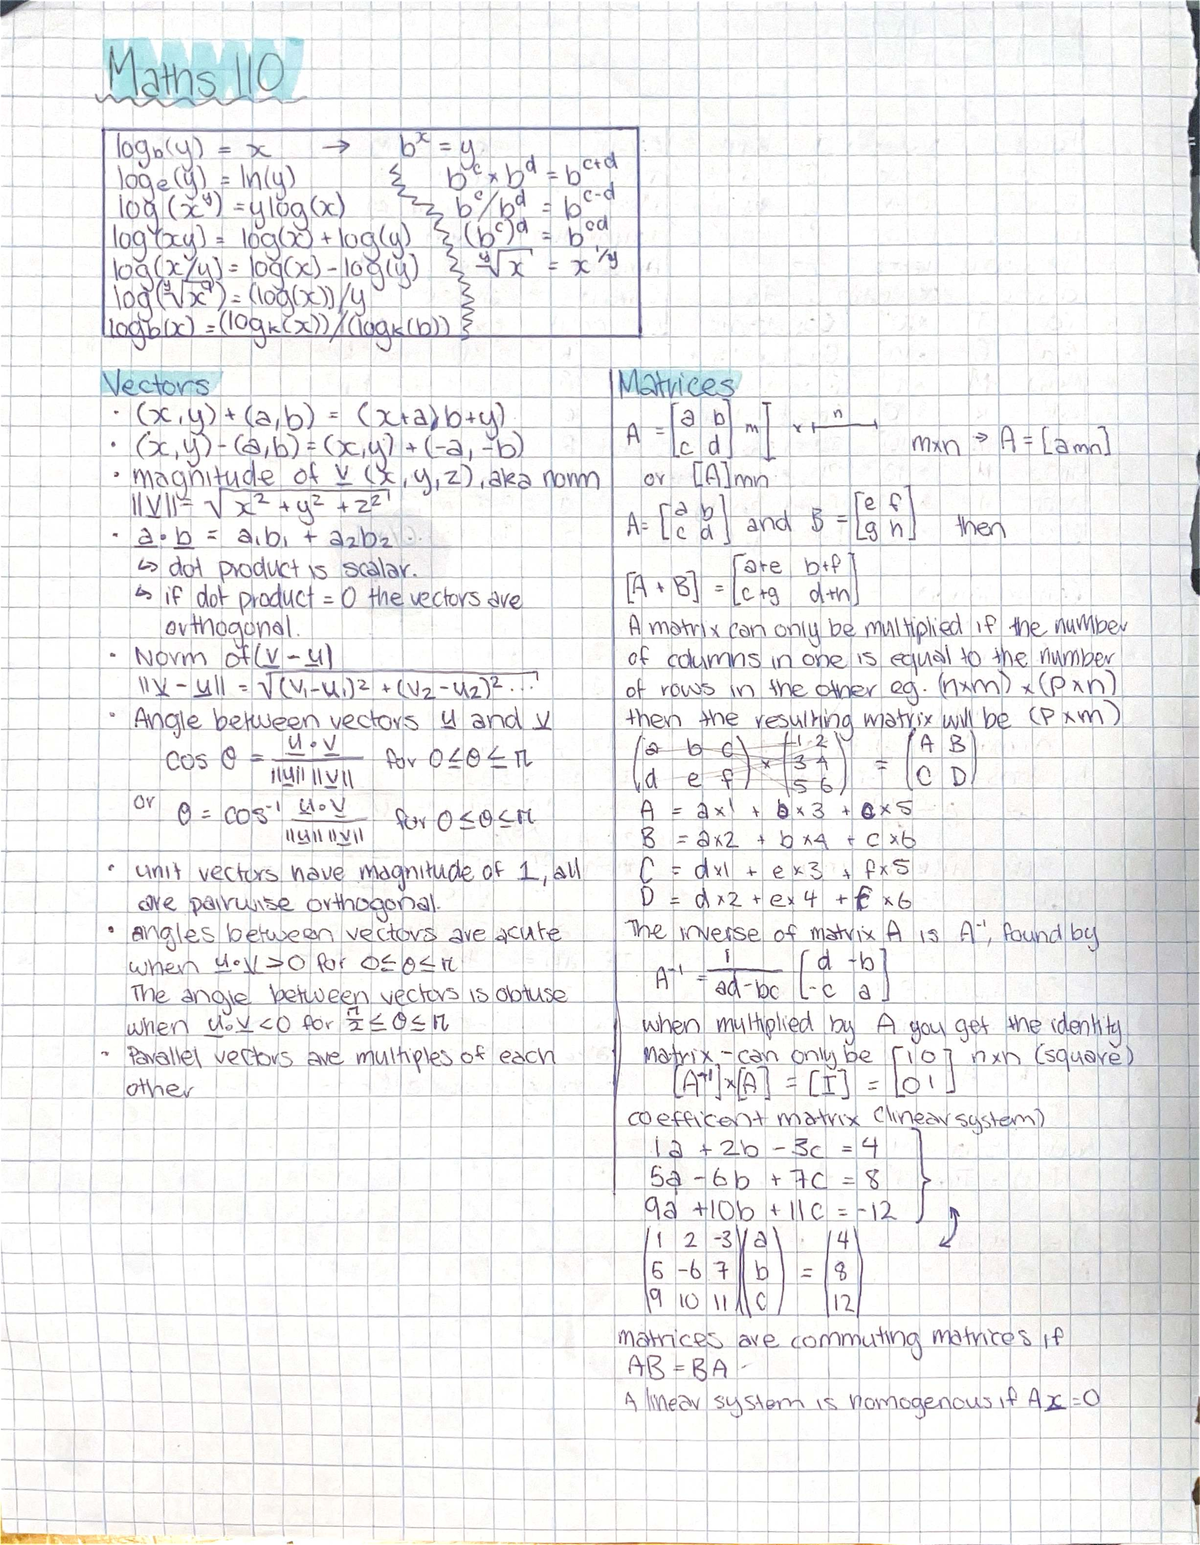 Maths 110
log_b(y) = x → b^x = y
log_e(y) = ln(y) b^c × b^d = b^(c+d)
log(x^y) = y log(x) b^c/b^d = b^(c-d)
log(xy) = log(x) + log(y) (b^c)^d = b^(cd)
log(x/y) = log(x) - log(y) ^y√x = x^(1/y)
log(^y√x) = (log(x))/y
log_b(x) = (log_k(x))/(log_k(b))
Vectors
• (x,y) + (a,b) = (x+a, b+y)
• (x,y) - (a,b) = (x,y) + (-a,-b)
• magnitude of v (x,y,z), aka norm
||V|| = √x² + y² + z²
• a • b = a₁b₁ + a₂b₂ ...
↳ dot product is scalar.
↳ if dot product = 0 the vectors are
orthogonal.
• Norm of (v - u)
||v - u|| = √(v₁-u₁)² + (v₂-u₂)² ...
• Angle between vectors u and v
cos θ = u • v / ||u|| ||v|| for 0 ≤ θ ≤ π
or θ = cos⁻¹ u • v / ||u|| ||v|| for 0 ≤ θ ≤ π
• unit vectors have magnitude of 1, all
are pairwise orthogonal.
• angles between vectors are acute
when u • v > 0 for 0 ≤ θ ≤ π
The angle between vectors is obtuse
when u • v < 0 for π/2 ≤ θ ≤ π
• Parallel vectors are multiples of each
other
Matrices
A = [a b; c d] m] n m×n → A = [amn]
or [A]mn
A = [a b; c d] and B = [e f; g h] then
[A + B] = [a+e b+f; c+g d+h]
A matrix can only be multiplied if the number
of columns in one is equal to the number
of rows in the other eg. (n×m) × (p×n)
then the resulting matrix will be (p×m)
(a b c; d e f) × (1 2; 3 4; 5 6) = (A B; C D)
A = a×1 + b×3 + c×5
B = a×2 + b×4 + c×6
C = d×1 + e×3 + f×5
D = d×2 + e×4 + f×6
The inverse of matrix A is A⁻¹, found by
A⁻¹ = 1/ad-bc [d -b; -c a]
when multiplied by A you get the identity
matrix - can only be n×n (square)
[A⁻¹]×[A] = [I] = [1 0; 0 1]
coefficent matrix (linear system)
1a + 2b - 3c = 4
5a - 6b + 7c = 8
9a + 10b + 11c = -12
(1 2 -3; 5 -6 7; 9 10 11)(a; b; c) = (4; 8; 12)
matrices are commuting matrices if
AB = BA
A linear system is homogenous if Ax = 0